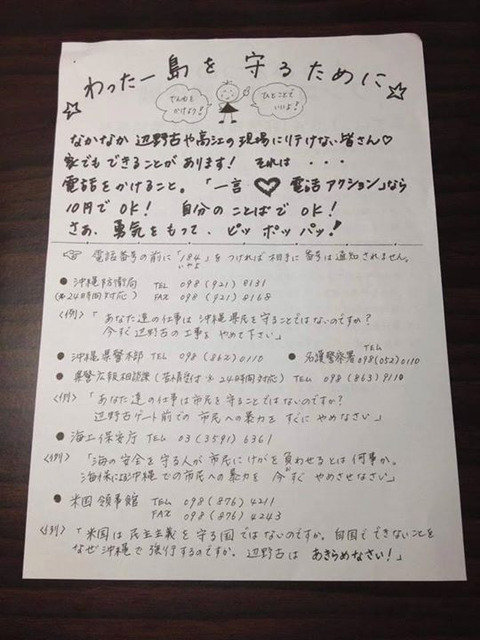 わったー島を守るために
でんわを
かけよう!
ひとことで
いいよ!
なかなか 辺野古や高江の現場に行けない皆さん♡
家でもできることがあります! それは ・・・
電話をかけること。「一言♥電話アクション」なら
10円でOK! 自分のことばでOK!
さあ、勇気をもって、ピッポッパッ!
☞ 電話番号の前に「184」をつければ相手に番号は通知されません。
いやよ
● 沖縄防衛局 TEL 098(921)8131
(※24時間対応) FAX 098(921)8168
〈例〉「あなた達の仕事は沖縄県民を守ることではないのですか?
今すぐ辺野古の工事をやめて下さい」
● 沖縄県警本部 TEL 098(862)0110 ● 名護警察署 TEL 098(052)0110
● 県警広報相談課(苦情受付※24時間対応) TEL 098(863)9110
〈例〉「あなた達の仕事は市民を守ることではないのですか?
辺野古ゲート前での市民への暴力をすぐにやめなさい」
● 海上保安庁 TEL 03(3591)6361
〈例〉「海の安全を守る人が市民にけがを負わせるとは何事か。
沖縄での市民への暴力を今すぐやめさせなさい」
● 米国領事館 TEL 098(876)4211
FAX 098(876)4243
〈例〉「米国は民主主義を守る国ではないのですか。自国でできないことを
なぜ沖縄で強行するのですか。辺野古はあきらめなさい!」